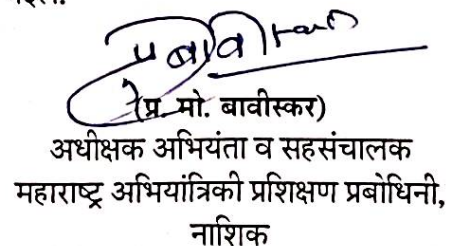 प्रबावीस्कर
(प्र. मो. बावीस्कर)
अधीक्षक अभियंता व सहसंचालक
महाराष्ट्र अभियांत्रिकी प्रशिक्षण प्रबोधिनी,
नाशिक